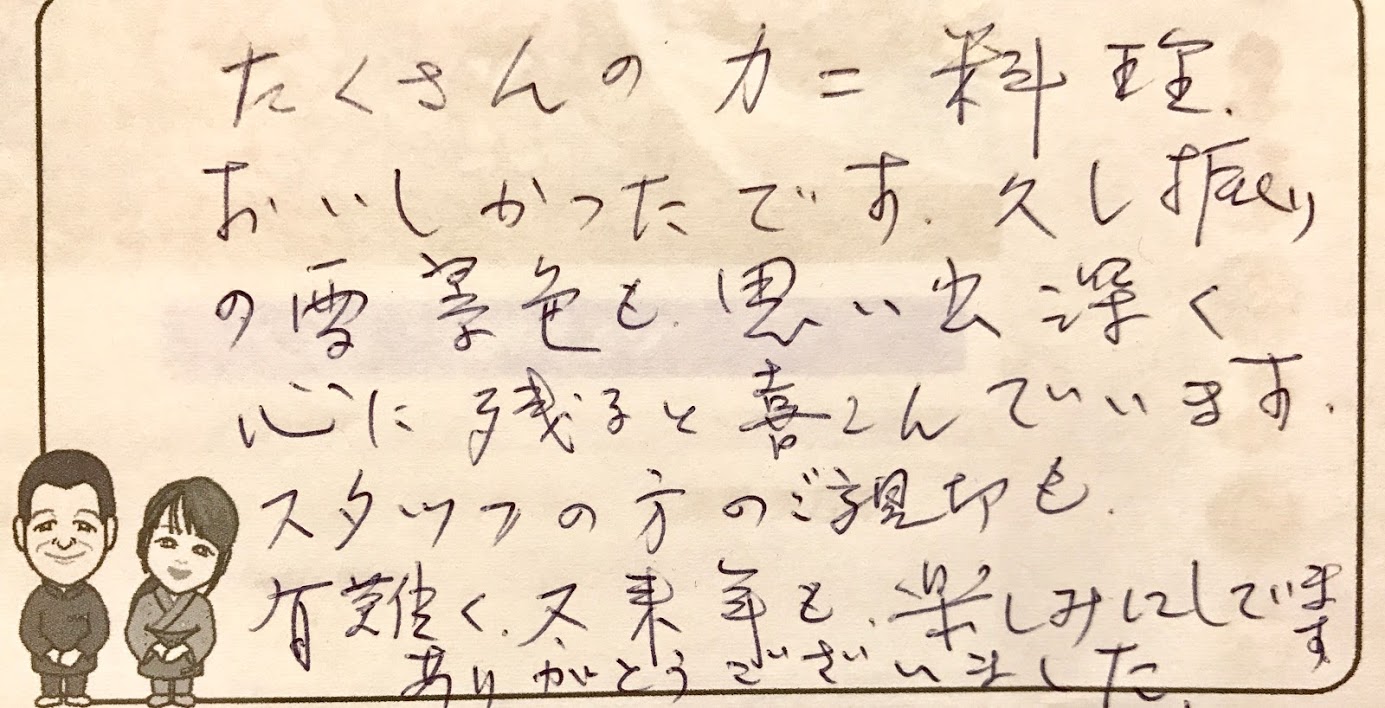 たくさんのカニ料理.
おいしかったです.久し振り
の雪景色も.思い出深く
心に残ると喜こんでいます.
スタッフの方のご親切も.
有難く.又来年も.楽しみにしています
ありがとうございました.